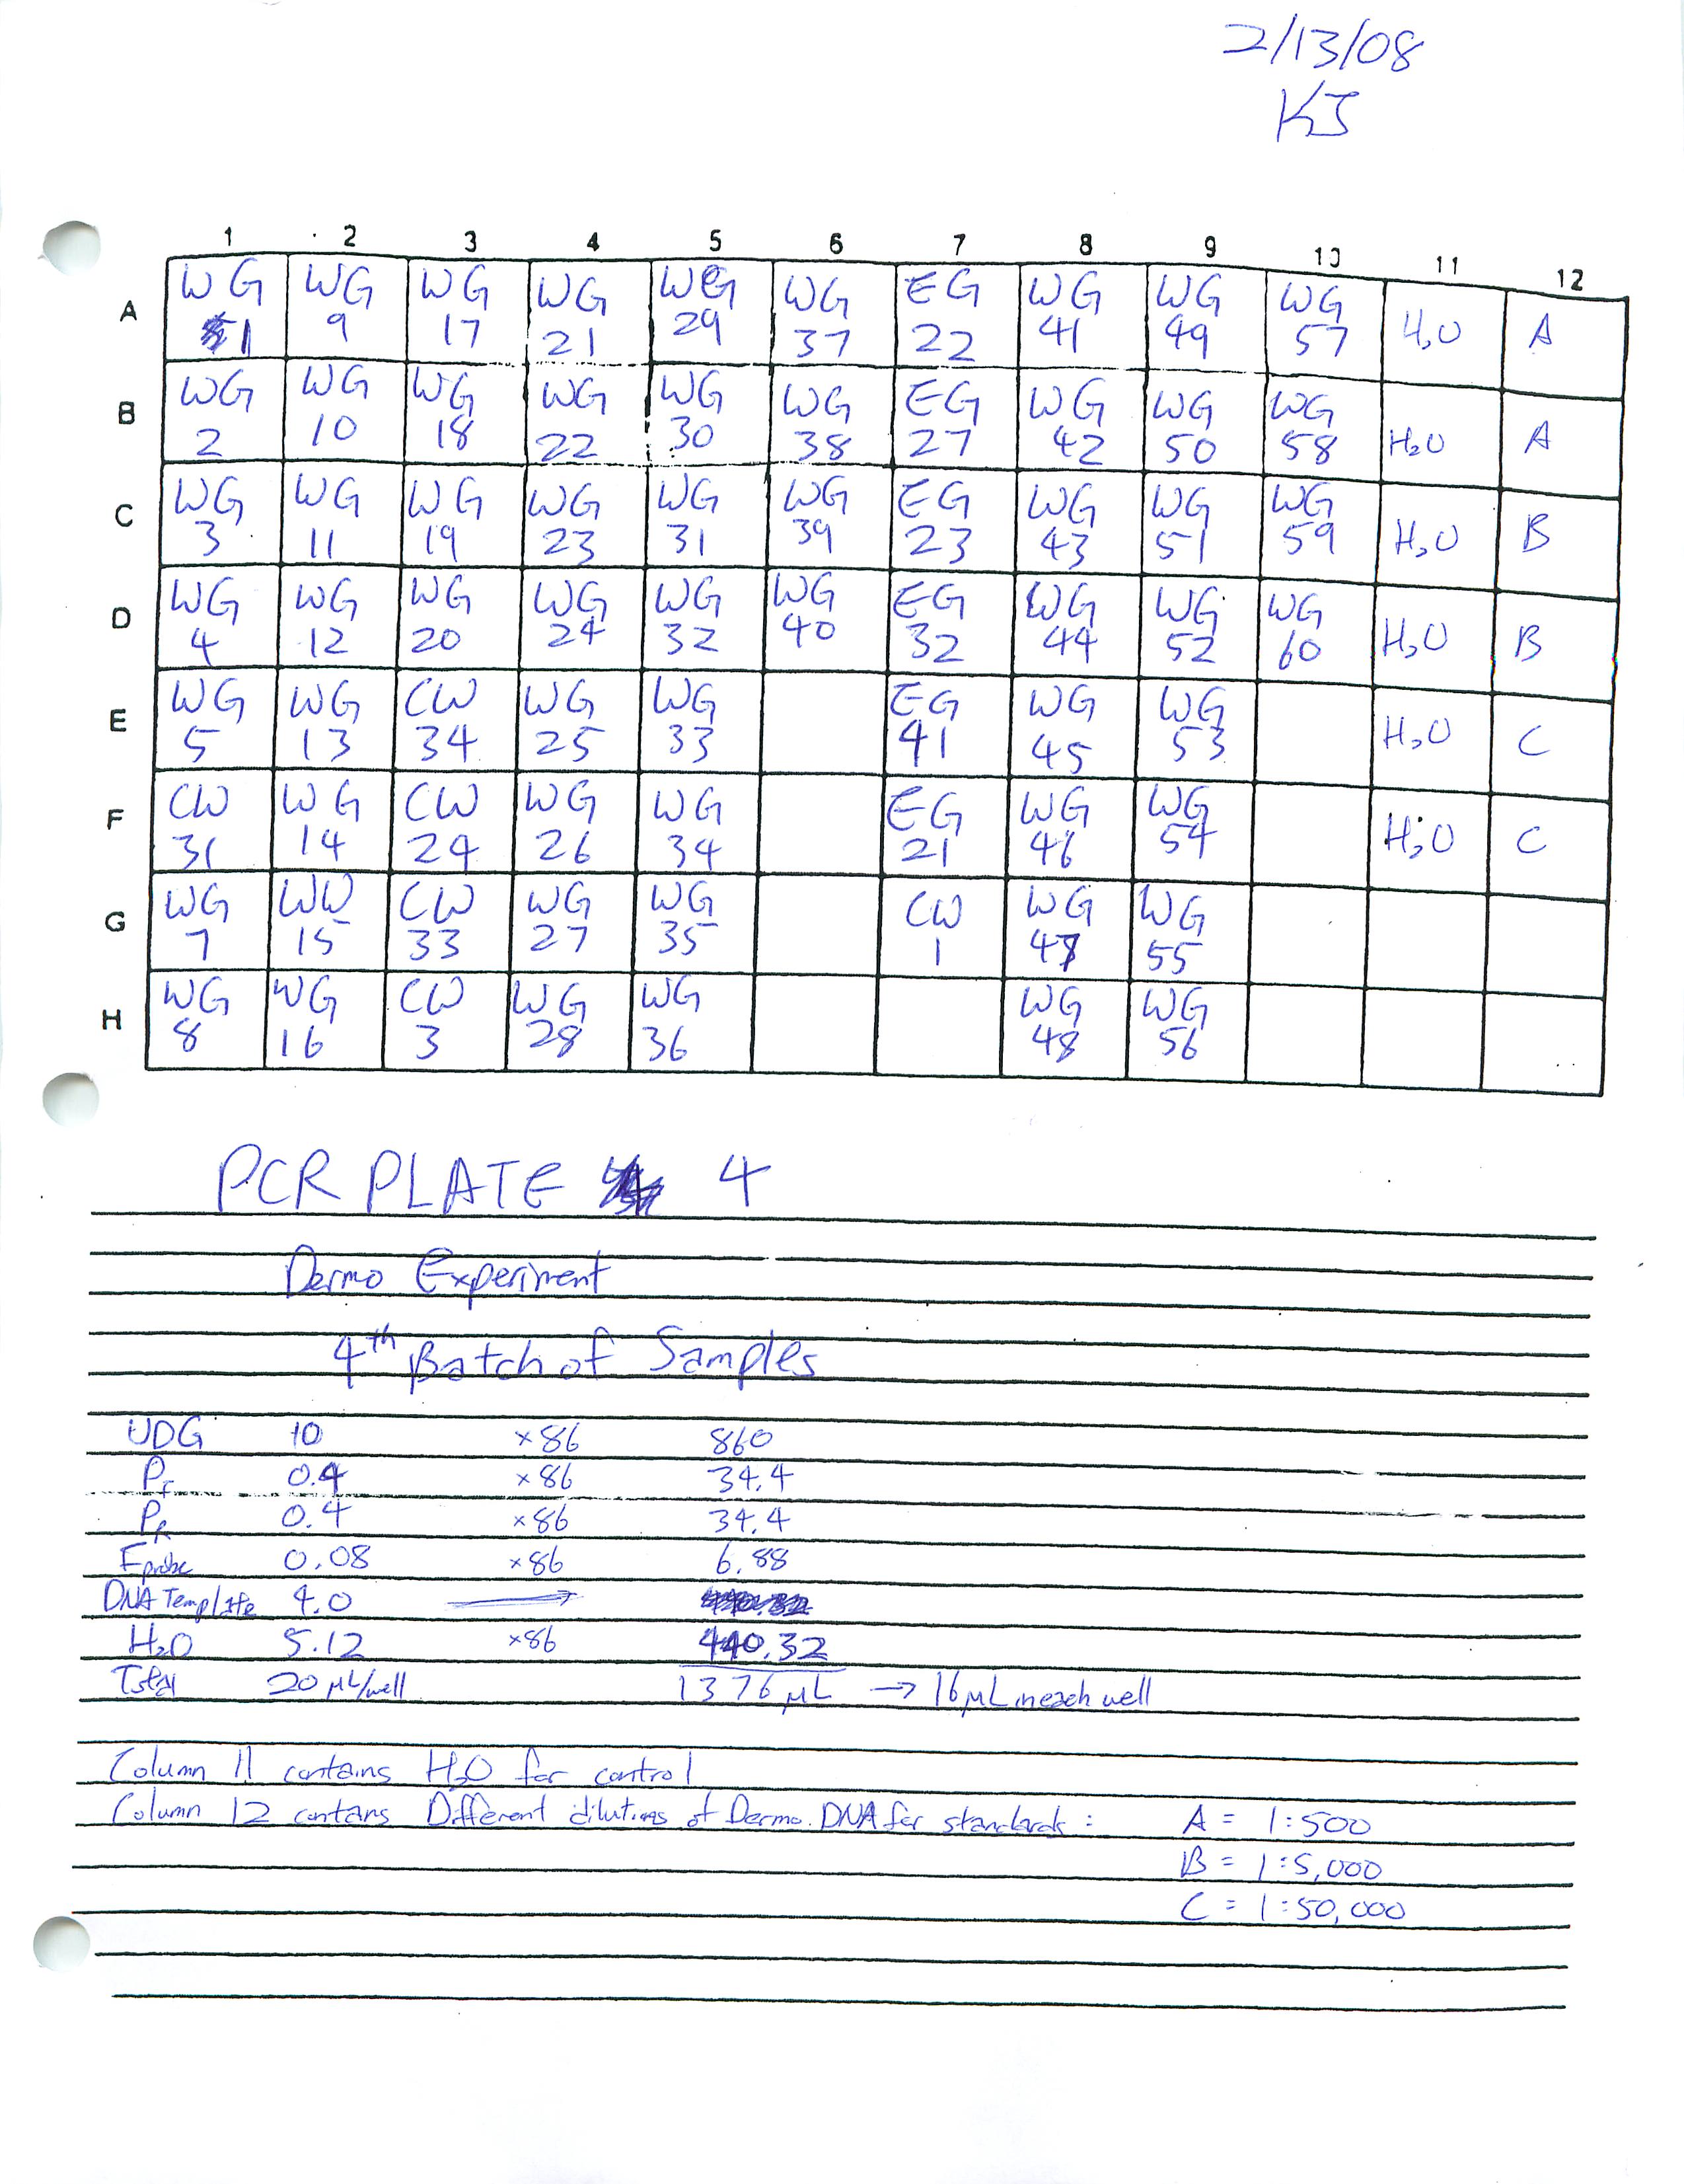 2/13/08
KJ
1 2 3 4 5 6 7 8 9 10 11 12
A WG 1 WG 9 WG 17 WG 21 WG 29 WG 37 EG 22 WG 41 WG 49 WG 57 H2O A
B WG 2 WG 10 WG 18 WG 22 WG 30 WG 38 EG 27 WG 42 WG 50 WG 58 H2O A
C WG 3 WG 11 WG 19 WG 23 WG 31 WG 39 EG 23 WG 43 WG 51 WG 59 H2O B
D WG 4 WG 12 WG 20 WG 24 WG 32 WG 40 EG 32 WG 44 WG 52 WG 60 H2O B
E WG 5 WG 13 CW 34 WG 25 WG 33 EG 41 WG 45 WG 53 H2O C
F CW 31 WG 14 CW 24 WG 26 WG 34 EG 21 WG 46 WG 54 H2O C
G WG 7 WW 15 CW 33 WG 27 WG 35 CW 1 WG 47 WG 55
H WG 8 WG 16 CW 3 WG 28 WG 36 WG 48 WG 56
PCR PLATE 4
Dermo Experiment
4th Batch of Samples
UDG 10 x86 860
PF 0.4 x86 34.4
PR 0.4 x86 34.4
Fprobe 0.08 x86 6.88
DNA Template 4.0 →
H2O 5.12 x86 440.32
Total 20 µL/well 1376 µL → 16 µL in each well
Column 11 contains H2O for control
Column 12 contains Different dilutions of Dermo DNA for standards : A = 1:500
B = 1:5,000
C = 1:50,000